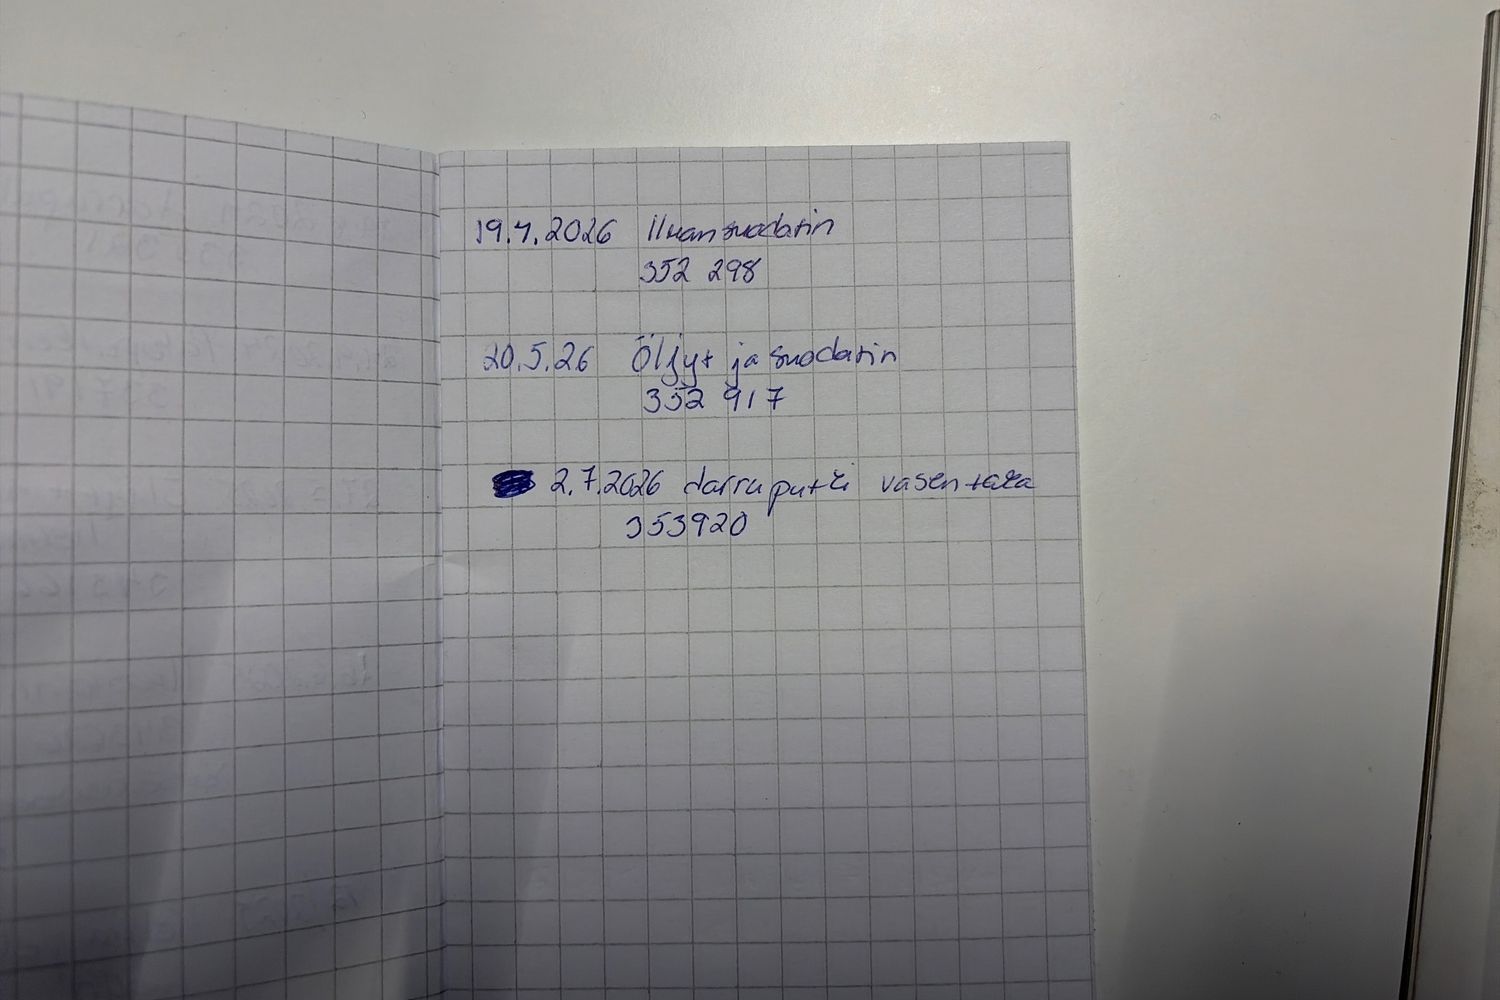 19.4.2026 Ilmansuodatin
352 298
20.5.26 Öljyt ja suodatin
352 917
2.7.2026 jarruputki vasen taka
353920